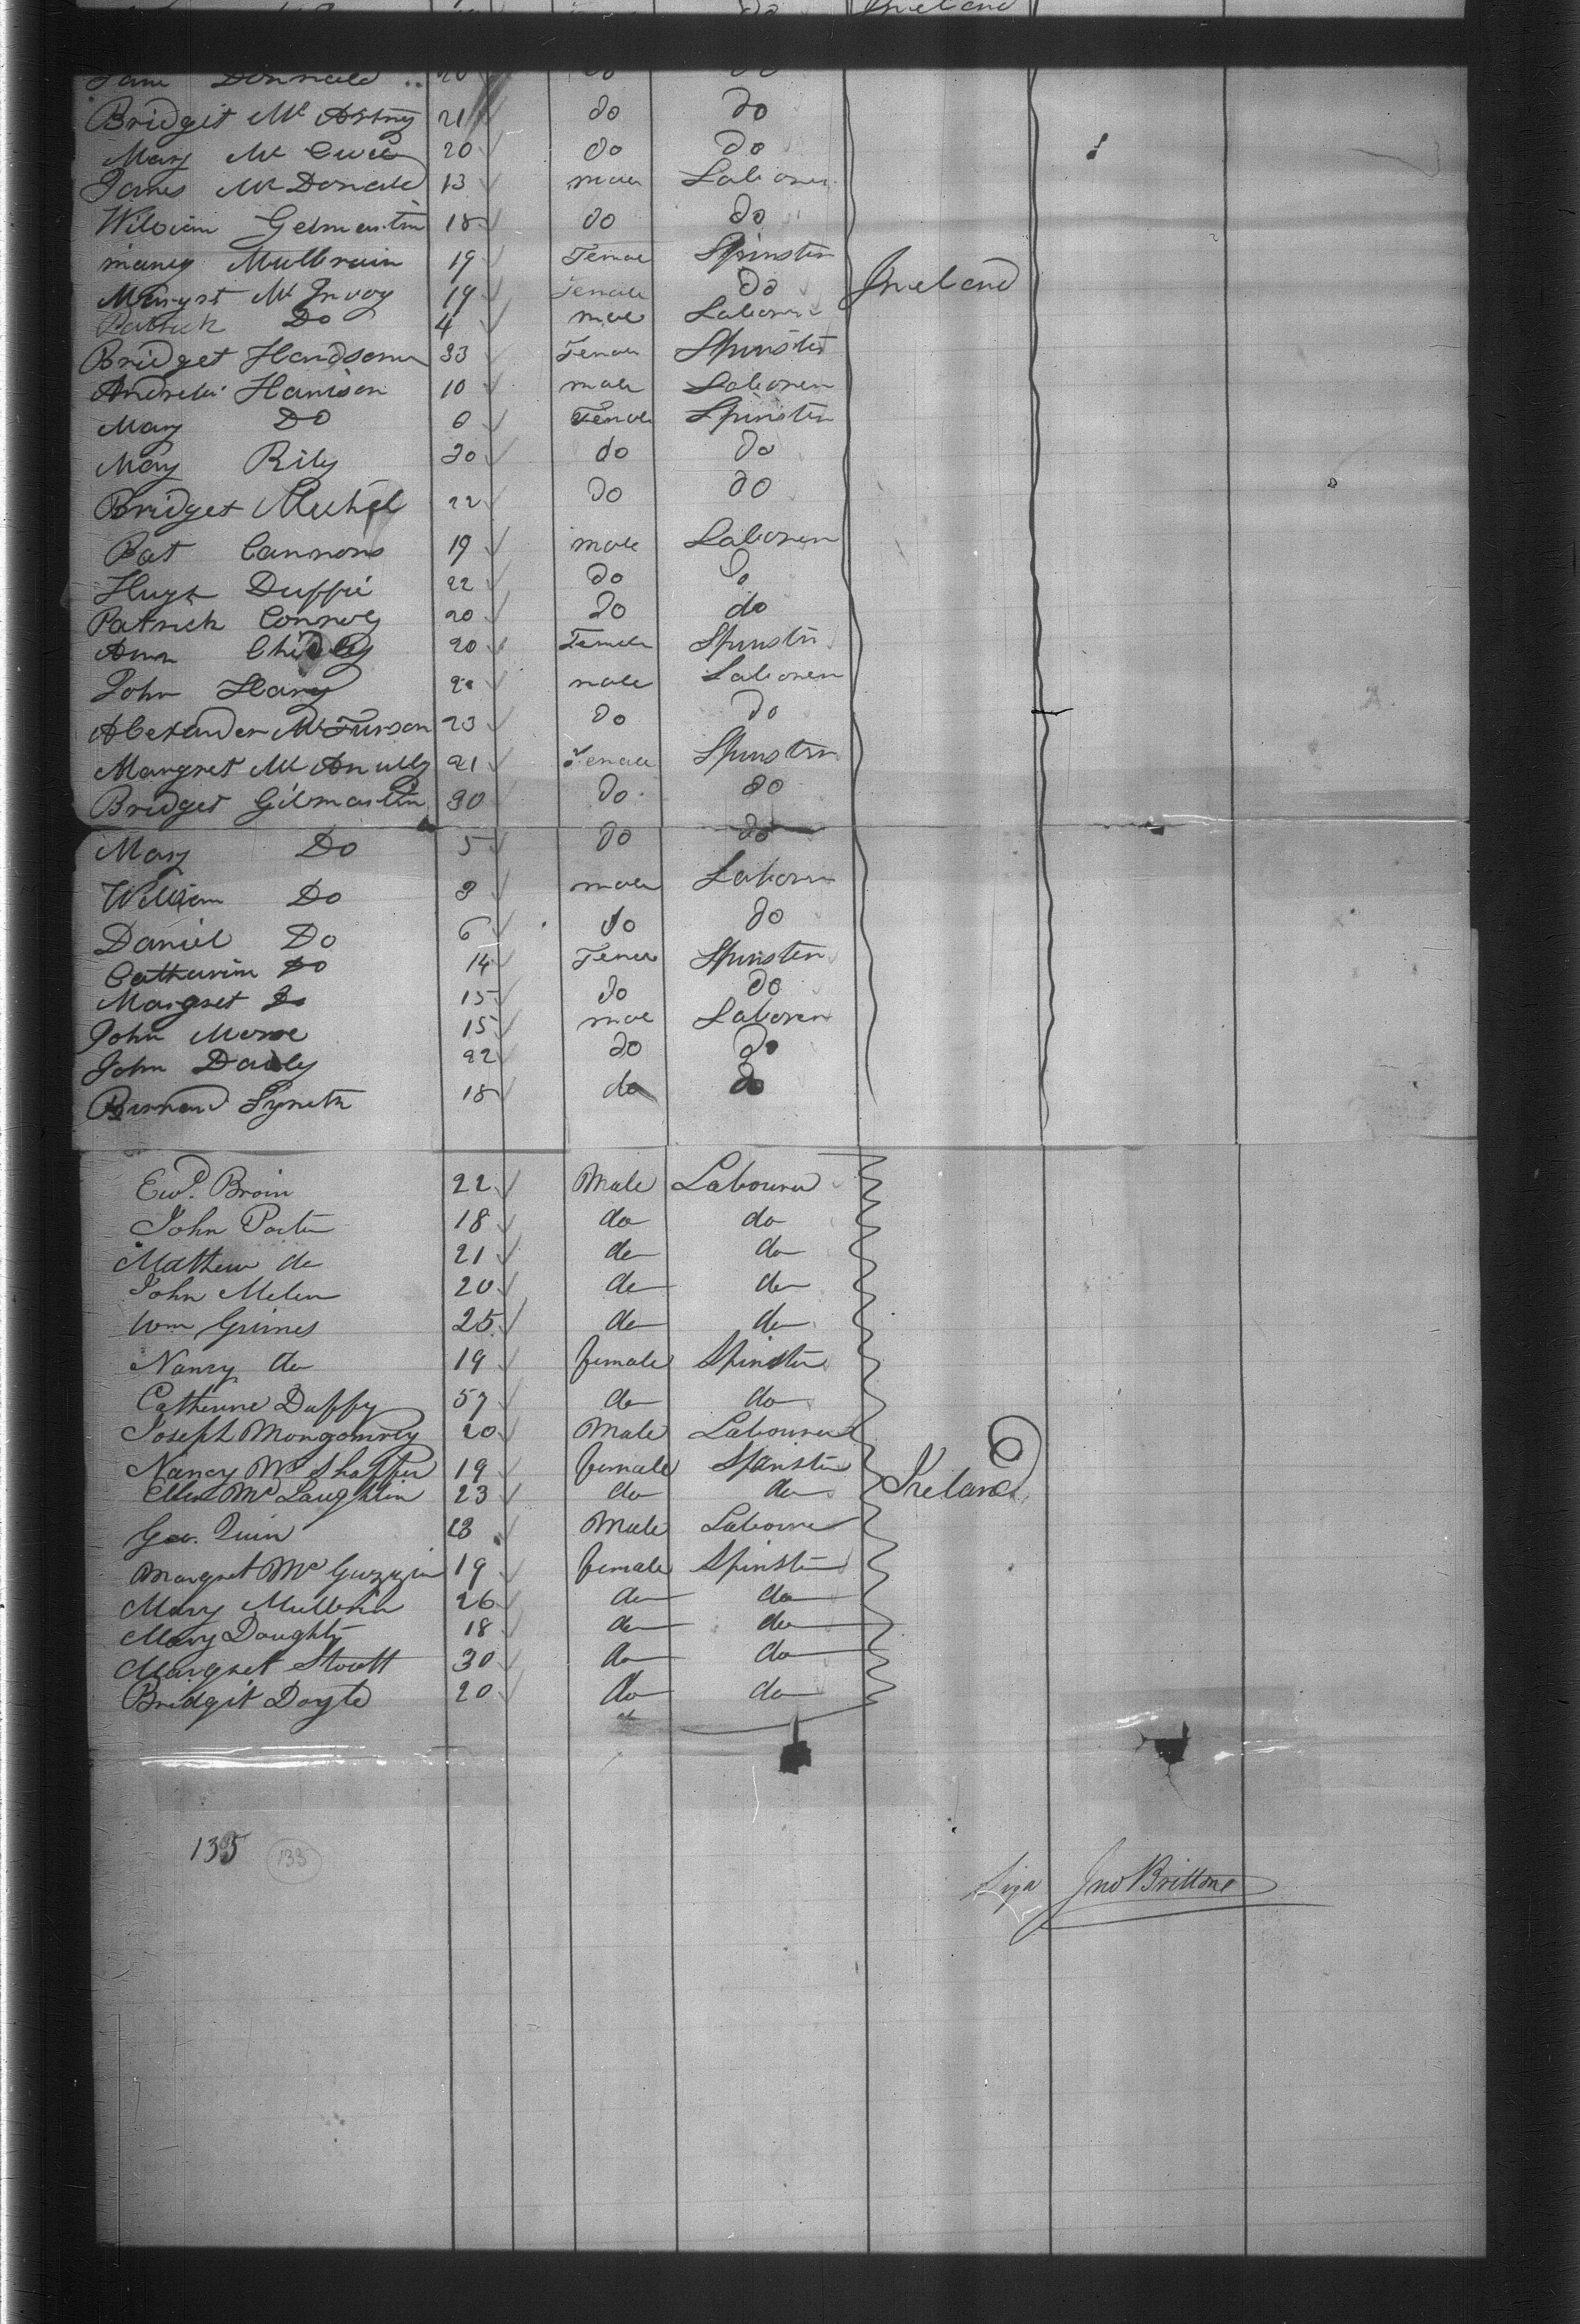 do Ireland
Jane Donnald .. 20 do do
Bridgit Mc 21 do do
Mary Mc 20 do do
James Mc Donald 13 male Laborer
William Gelmartin 18 do do
Mullrain 19 Female Spinster
Margrt Mc 19 Female do Ireland
Patrick Do 4 male Laborer
Bridget 33 Female Spinster
Andrew Harrison 10 male Laborer
Mary Do 6 Female Spinster
Mary Rily 20 do do
Bridget 22 do do
Pat Cannons 19 male Laborer
Hugh Duffie 22 do do
Patrick Connoly 20 do do
Ann 20 Female Spinster
John Hary male Laborer
Alexander Mc 23 do do
Margret Mc Anully 21 Female Spinster
Bridget Gilmartin 30 do do
Mary Do 5 do do
William Do male Laborer
Daniel Do 6 do do
Catharine Do 14 Female Spinster
Margret Do 15 do do
John 15 male Laborer
John Daily 22 do do
18 do do
Ewd. Broin 22 Male Labourer
John Porter 18 do do
Mathew do 21 do do
John 20 do do
Wm Grimes 25 do do
Nancy do 19 female Spinster
Catherine Duffy 57 do do
Joseph Mongomrey 20 Male Labourer
Nancy Mc Shaffer 19 female Spinster
Ellen Mc Laughlin 23 do do Ireland
Geo. Quin Male Labourer
Margret Mc 19 female Spinster
Mary 26 do do
Mary Doughty 18 do do
Margret Stoutt 30 do do
Bridgit Doyle 20 do do
135 133
Jno Brittone